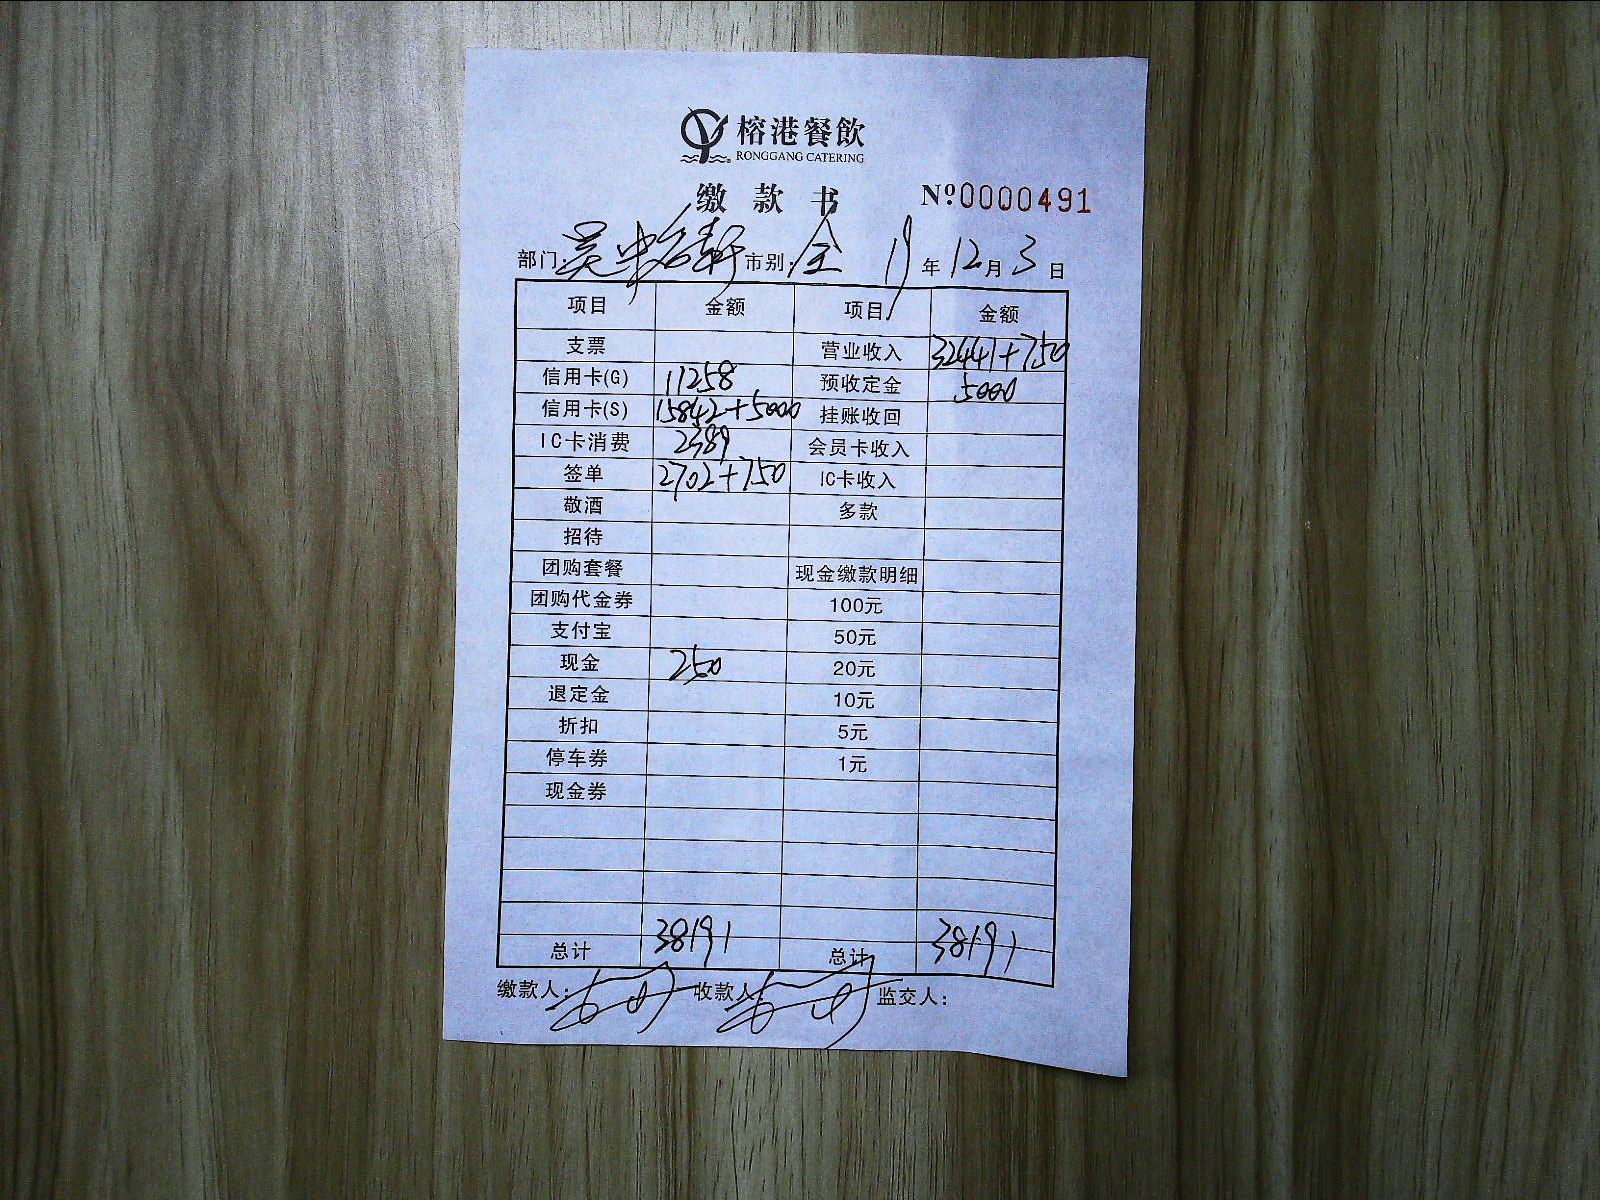 榕港餐飲
RONGGANG CATERING
缴款书 Nº0000491
部门: 吴中名轩 市别: 全 19年12月3日
项目 金额 项目 金额
支票 营业收入 32441+750
信用卡(G) 11258 预收定金 5000
信用卡(S) 15842+5000 挂账收回
IC卡消费 2389 会员卡收入
签单 2702+750 IC卡收入
敬酒 多款
招待
团购套餐 现金缴款明细
团购代金券 100元
支付宝 50元
现金 250 20元
退定金 10元
折扣 5元
停车券 1元
现金券
总计 38191 总计 38191
缴款人: 收款人: 监交人: